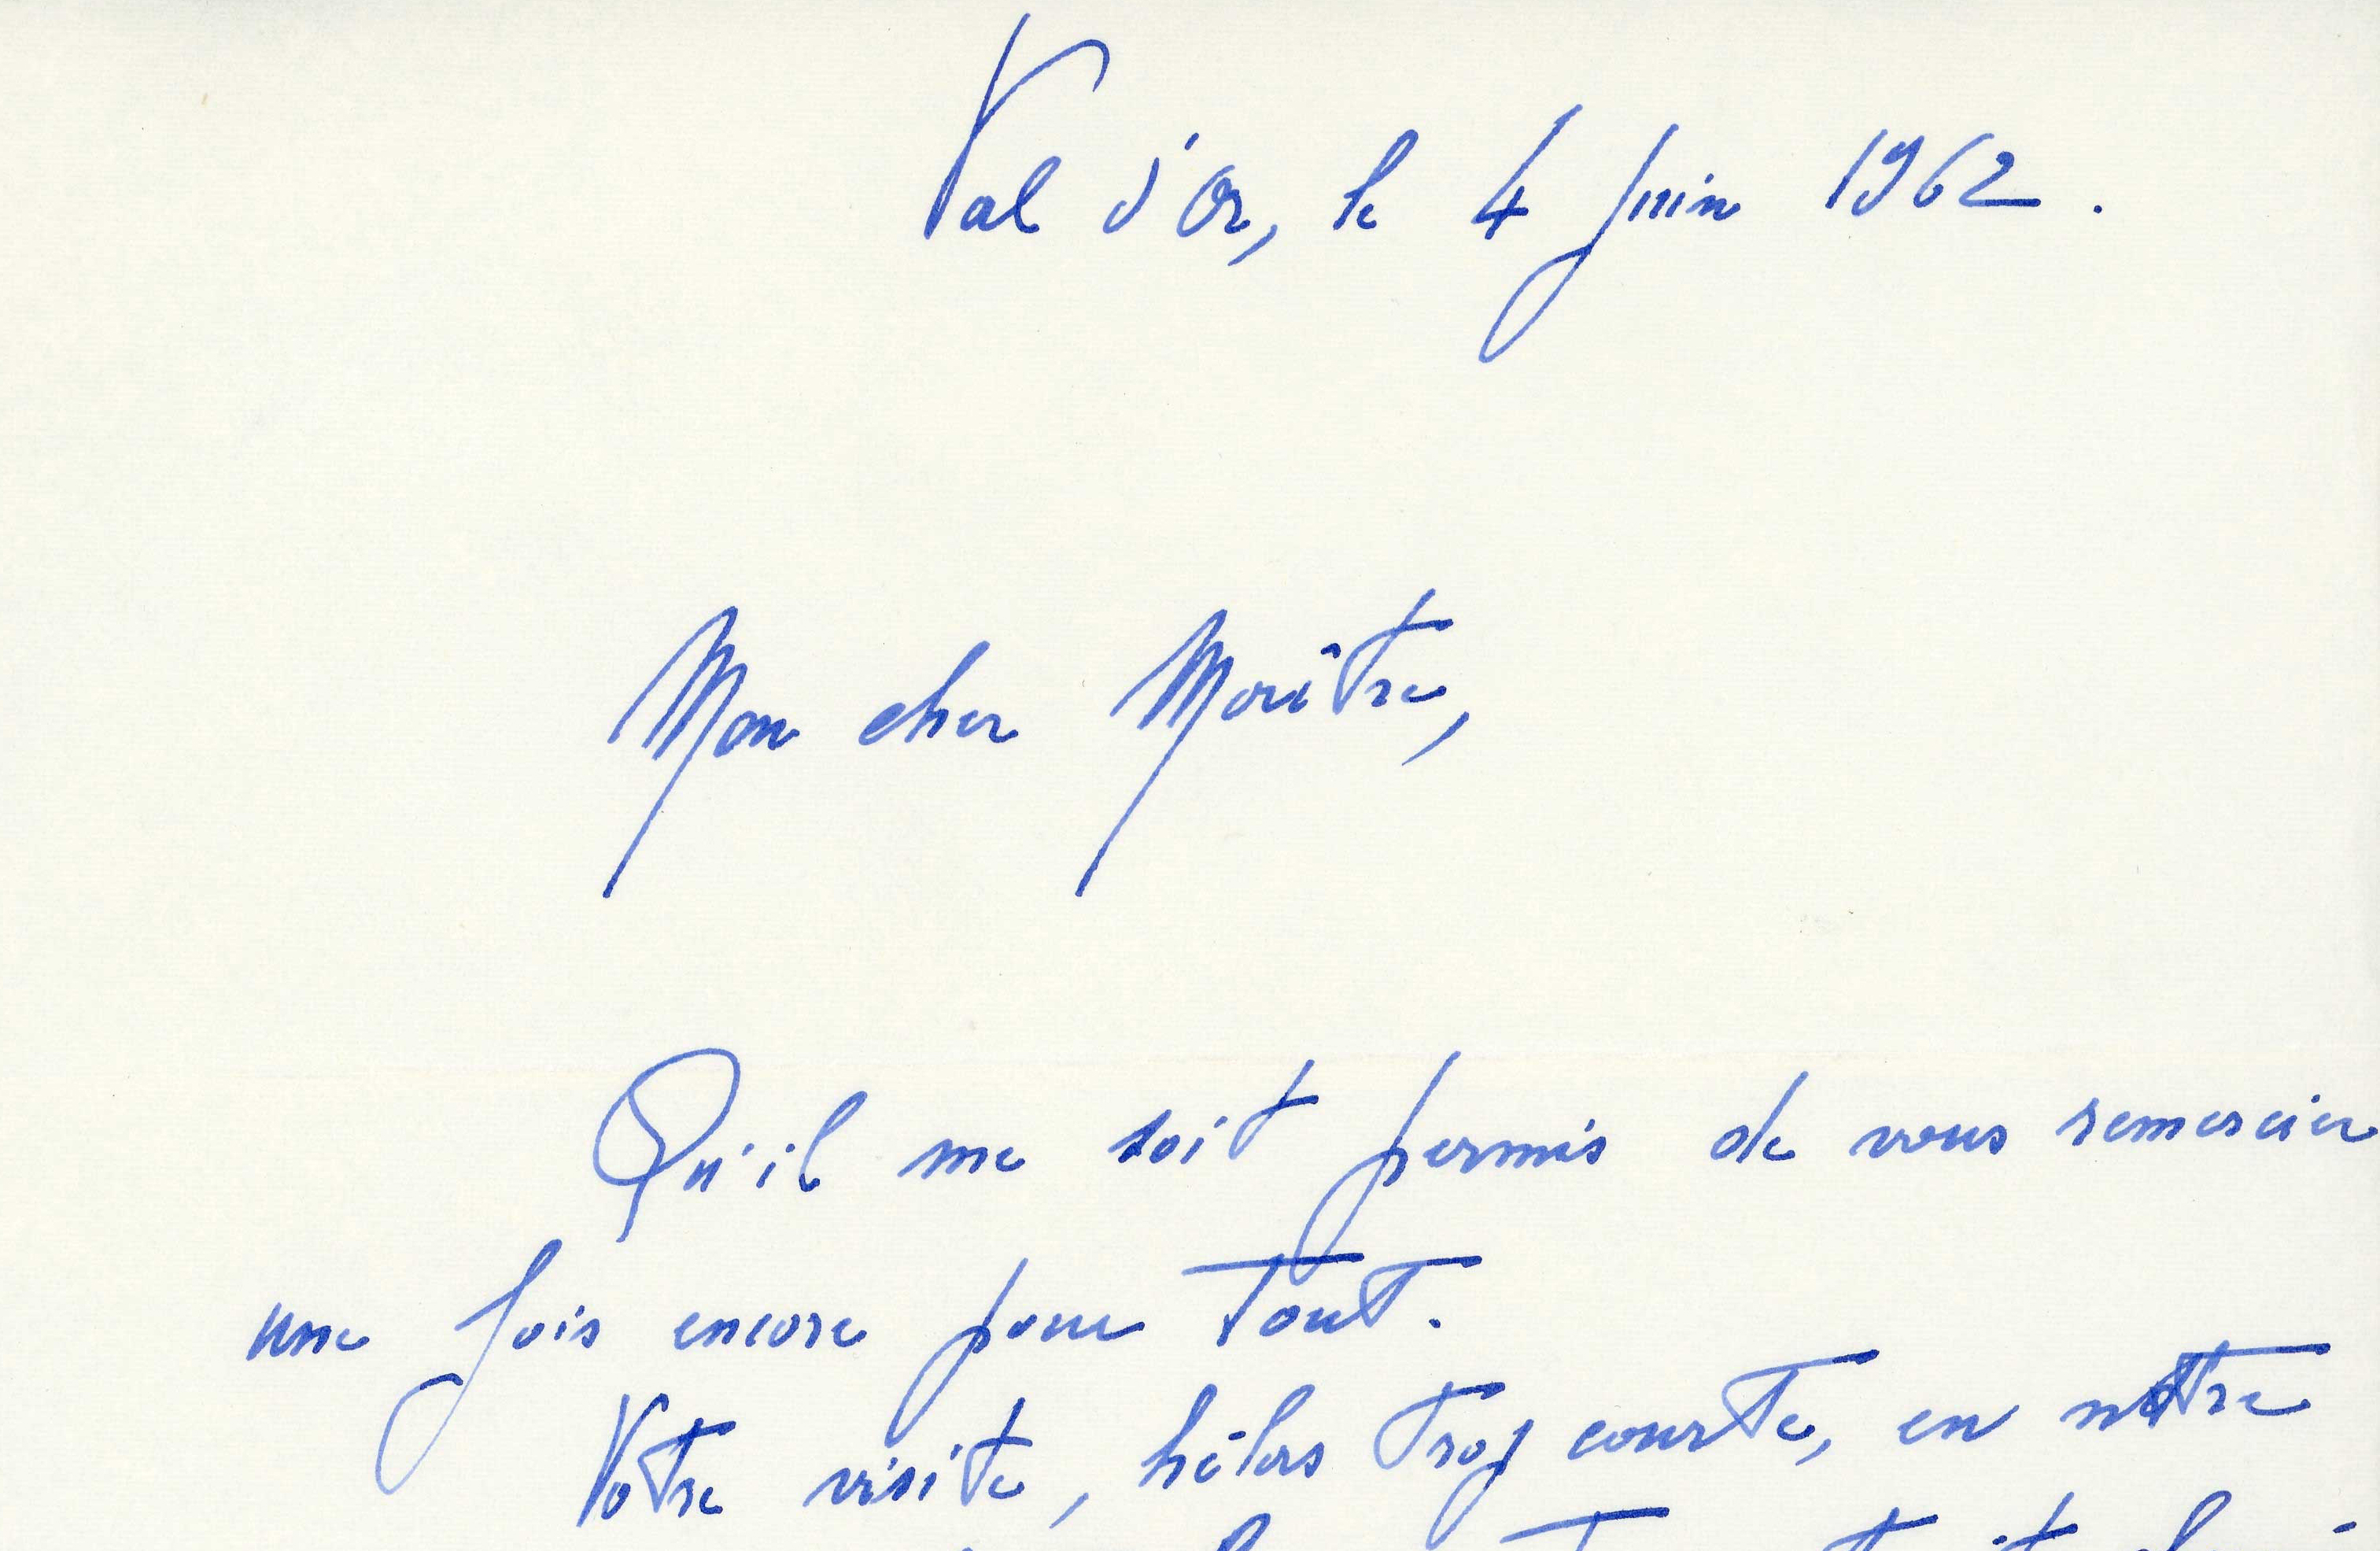 Val d'Or, le 4 juin 1962.
Mon cher Maître,
Qu'il me soit permis de vous remercier
une fois encore pour tout.
Votre visite, hélas trop courte, en notre